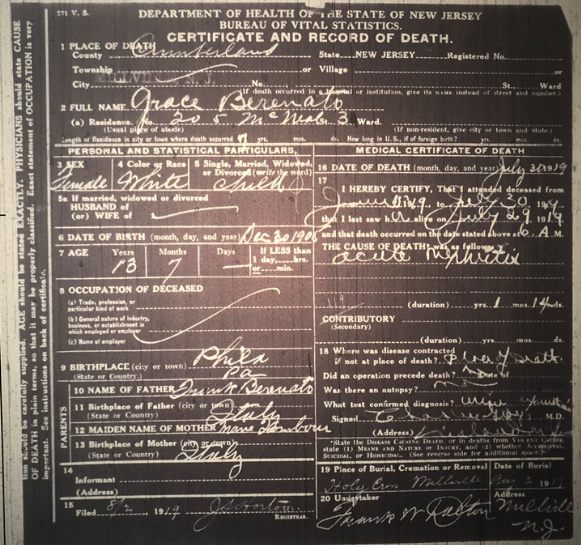 271 V. S.
DEPARTMENT OF HEALTH OF THE STATE OF NEW JERSEY
BUREAU OF VITAL STATISTICS.
CERTIFICATE AND RECORD OF DEATH.
1 PLACE OF DEATH
County Cumberland State NEW JERSEY Registered No.
Township or Village
City No. St., Ward
(If death occurred in a hospital or institution, give its NAME instead of street and number.)
2 FULL NAME Grace Berenato
(a) Residence. No. 205 McNeal St. 3 Ward.
(Usual place of abode) (If non-resident, give city or town and State.)
Length of Residence in city or town where death occurred 7 yrs. mos. ds. How long in U.S., if of foreign birth? yrs. mos. ds.
PERSONAL AND STATISTICAL PARTICULARS.
3 SEX 4 Color or Race 5 Single, Married, Widowed, or Divorced (write the word)
Female White Child
5a If married, widowed or divorced
HUSBAND of
(or) WIFE of
6 DATE OF BIRTH (month, day, and year) Dec 30 1905
7 AGE Years Months Days If LESS than 1 day,....hrs. or....min.
13 7 —
8 OCCUPATION OF DECEASED
(a) Trade, profession, or particular kind of work
(b) General nature of industry, business, or establishment in which employed or employer
(c) Name of employer
9 BIRTHPLACE (city or town) Phila
(State or Country) Pa
10 NAME OF FATHER Frank Berenato
11 Birthplace of Father (city or town)
(State or Country) Italy
12 MAIDEN NAME OF MOTHER
13 Birthplace of Mother (city or town)
(State or Country) Italy
PARENTS
14
Informant
(Address)
15
Filed 8/2 1919 REGISTRAR.
MEDICAL CERTIFICATE OF DEATH
16 DATE OF DEATH (month, day, and year) July 30 1919
17
I HEREBY CERTIFY, That I attended deceased from
19, to July 30, 1919
that I last saw h alive on July 29 1919
and that death occurred on the date stated above at 6 A M.
THE CAUSE OF DEATH was as follows:
acute nephritis
(duration) yrs. 1 mos. 14 ds.
CONTRIBUTORY
(Secondary)
(duration) yrs. mos. ds.
18 Where was disease contracted
if not at place of death?
Did an operation precede death? Date of
Was there an autopsy? no
What test confirmed diagnosis?
Signed M.D.
(Address)
*State the DISEASE CAUSING DEATH, or in deaths from VIOLENT CAUSES, state (1) MEANS AND NATURE OF INJURY, and (2) whether ACCIDENTAL, SUICIDAL, or HOMICIDAL. (See reverse side for additional space.)
19 Place of Burial, Cremation or Removal Date of Burial
Millville 19
20 Undertaker Address
Frank W Dalton Millville
N.J.
tion should be carefully supplied. AGE should be stated EXACTLY. PHYSICIANS should state CAUSE
OF DEATH in plain terms, so that it may be properly classified. Exact statement of OCCUPATION is very
important. See instructions on back of certificate.